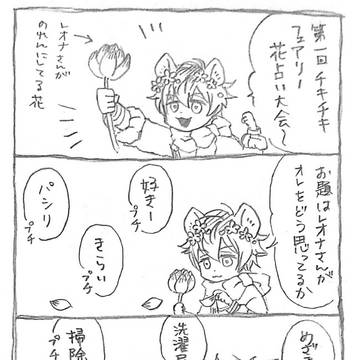 第一回チキチキ
フェアリー
花占い大会〜
レオナさんが
のれんにしてる花
お題はレオナさんが
オレをどう思ってるか
好きー
プチ
きらい
プチ
パシリ
プチ
めざ
洗濯
掃除
プチ